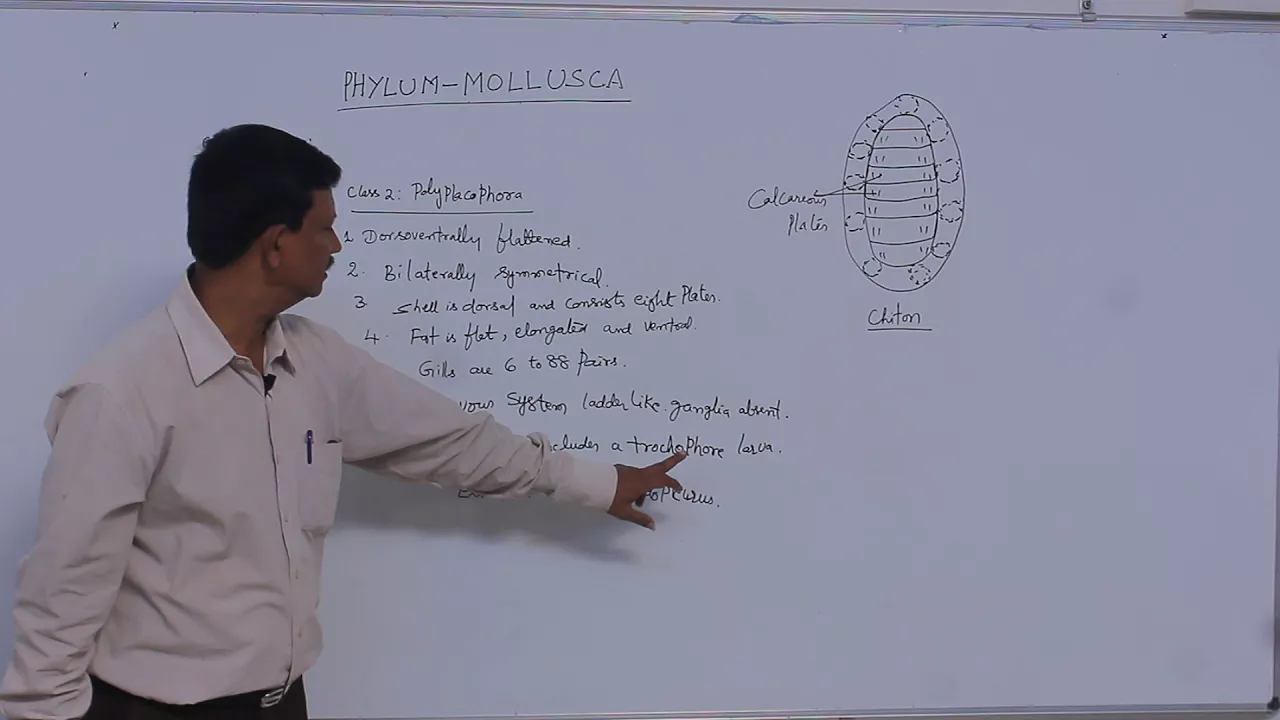 PHYLUM-MOLLUSCA
Class 2: Polyplacophora
1 Dorsoventrally flattened.
2. Bilaterally symmetrical.
3 Shell is dorsal and consists eight Plates.
4. Fat is flet, elongated and ventral.
Gills are 6 to 88 Pairs.
vous System ladder like. ganglia absent.
cludes a trochophore larva.
Calcareous
Plates
Chiton